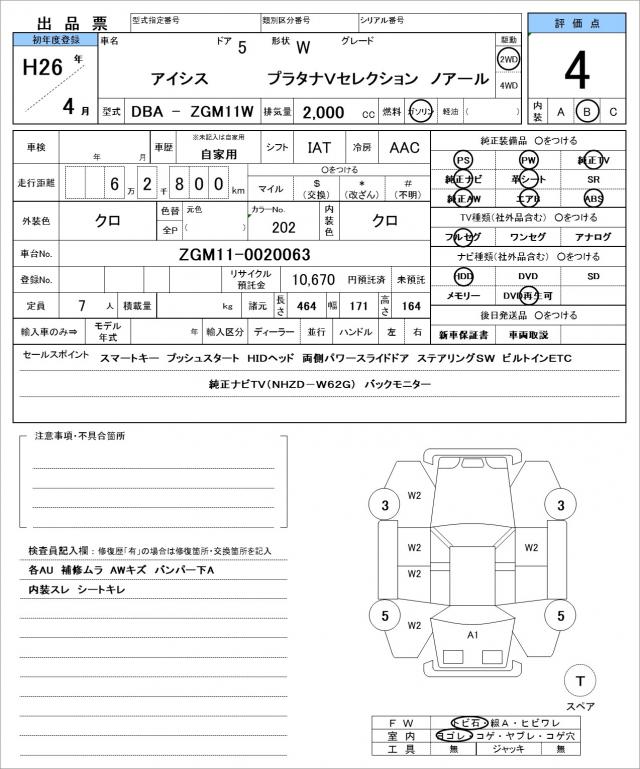 出品票
型式指定番号 類別区分番号 シリアル番号
評価点
初年度登録 車名 ドア 5 形状 W グレード 駆動
H26 年 4 月
アイシス プラタナVセレクション ノアール
2WD
4WD
4
型式 DBA － ZGM11W 排気量 2,000 cc 燃料 ガソリン 軽油 ( )
内装 A B C
車検 年 月 車歴 ※未記入は自家用 自家用 シフト IAT 冷房 AAC
純正装備品 〇をつける
PS PW 純正TV
走行距離 6 万 2 千 8 0 0 km 〇をつける
マイル $ (交換) * (改ざん) # (不明)
純正ナビ 革シート SR
純正AW エアB ABS
外装色 クロ 色替 元色 全P ( ) カラーNo. 202 内装色 クロ
TV種類(社外品含む) 〇をつける
フルセグ ワンセグ アナログ
車台No. ZGM11-0020063
ナビ種類(社外品含む) 〇をつける
登録No. リサイクル預託金 10,670 円預託済 未預託
HDD DVD SD
メモリー DVD再生可
定員 7 人 積載量 kg 諸元 長さ 464 幅 171 高さ 164
後日発送品 〇をつける
輸入車のみ⇒ モデル年式 年 輸入区分 ディーラー 並行 ハンドル 左 右
新車保証書 車両取説
セールスポイント スマートキー プッシュスタート HIDヘッド 両側パワースライドドア ステアリングSW ビルトインETC
純正ナビTV(NHZD－W62G) バックモニター
注意事項・不具合箇所
検査員記入欄：修復歴「有」の場合は修復箇所・交換箇所を記入
各AU 補修ムラ AWキズ バンパー下A
内装スレ シートキレ
W2
3 3
W2 W2
W2
5 W2 5
A1
T
スペア
FW トビ石・線A・ヒビワレ
室内 ヨゴレ・コゲ・ヤブレ・コゲ穴
工具 無 ジャッキ 無